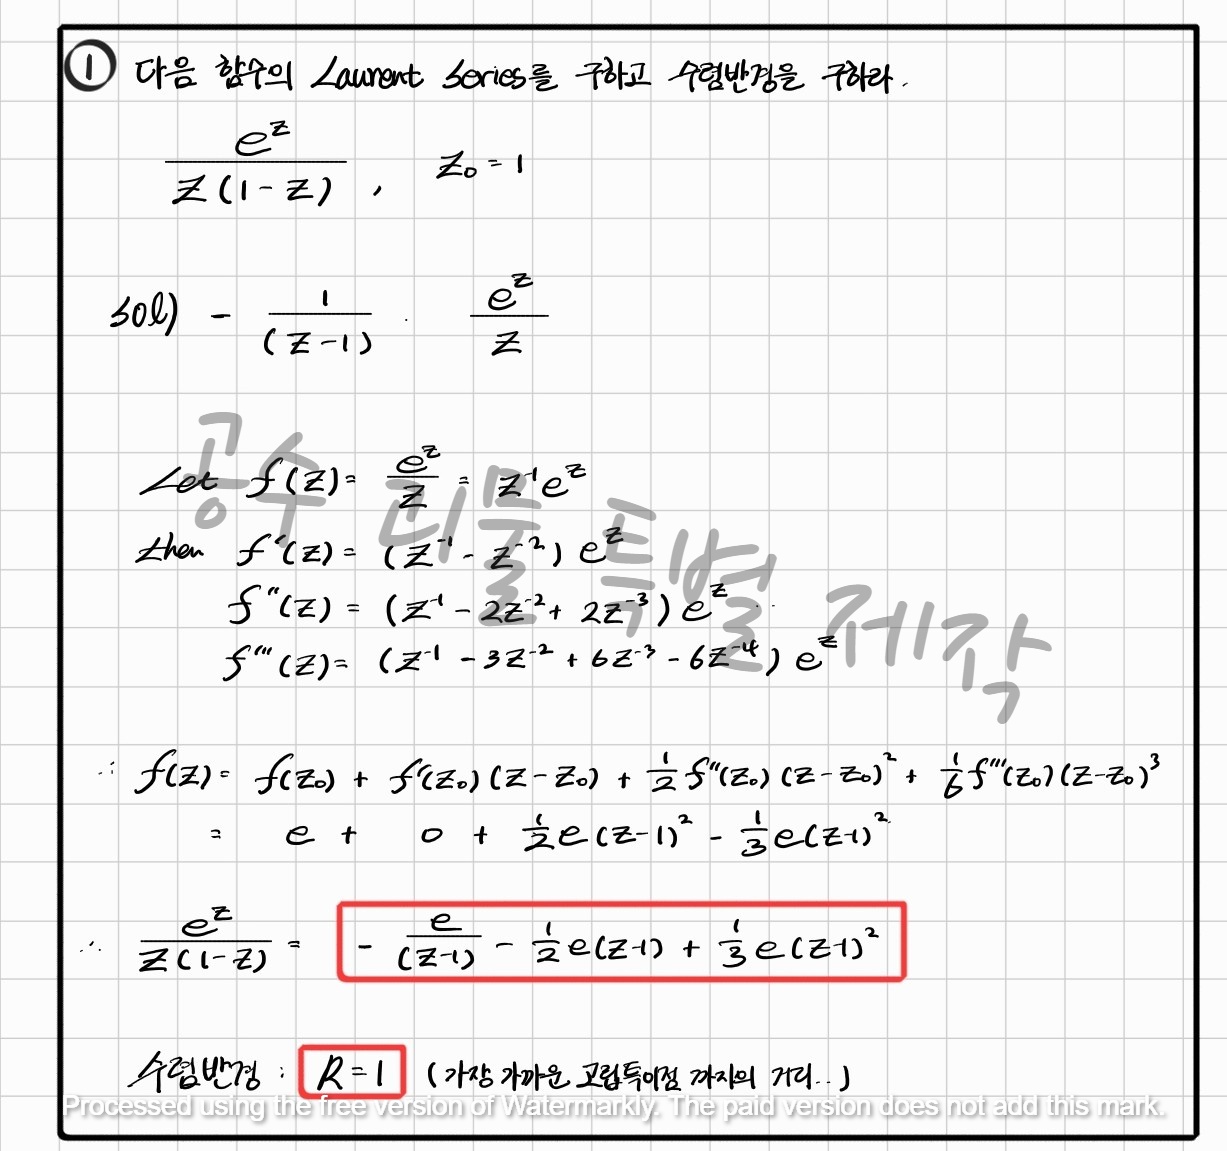 ① 다음 함수의 Laurent Series를 구하고 수렴반경을 구하라.
e^z / z(1-z) , z₀ = 1
sol) - 1/(z-1) · e^z/z
Let f(z) = e^z/z = z⁻¹e^z
then f'(z) = (z⁻¹ - z⁻²) e^z
f''(z) = (z⁻¹ - 2z⁻² + 2z⁻³) e^z
f'''(z) = (z⁻¹ - 3z⁻² + 6z⁻³ - 6z⁻⁴) e^z
공수 괴물 특별 제작
∴ f(z) = f(z₀) + f'(z₀)(z-z₀) + 1/2 f''(z₀)(z-z₀)² + 1/6 f'''(z₀)(z-z₀)³
= e + 0 + 1/2 e(z-1)² - 1/3 e(z-1)²
∴ e^z / z(1-z) = - e/(z-1) - 1/2 e(z-1) + 1/3 e(z-1)²
수렴반경 : R=1 (가장 가까운 고립특이점 까지의 거리..)
Processed using the free version of Watermarkly. The paid version does not add this mark.